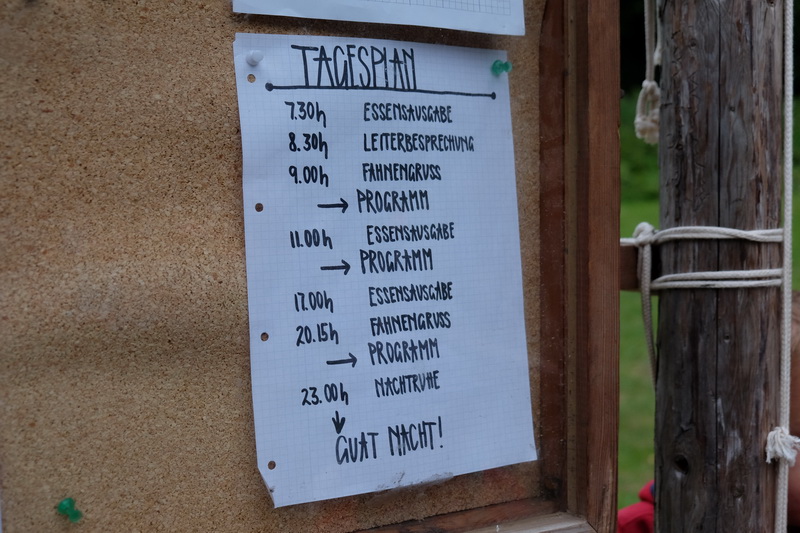 TAGESPLAN
7.30h ESSENSAUSGABE
8.30h LEITERBESPRECHUNG
9.00h FAHNENGRUSS
→ PROGRAMM
11.00h ESSENSAUSGABE
→ PROGRAMM
17.00h ESSENSAUSGABE
20.15h FAHNENGRUSS
→ PROGRAMM
23.00h NACHTRUHE
↓
GUAT NACHT!